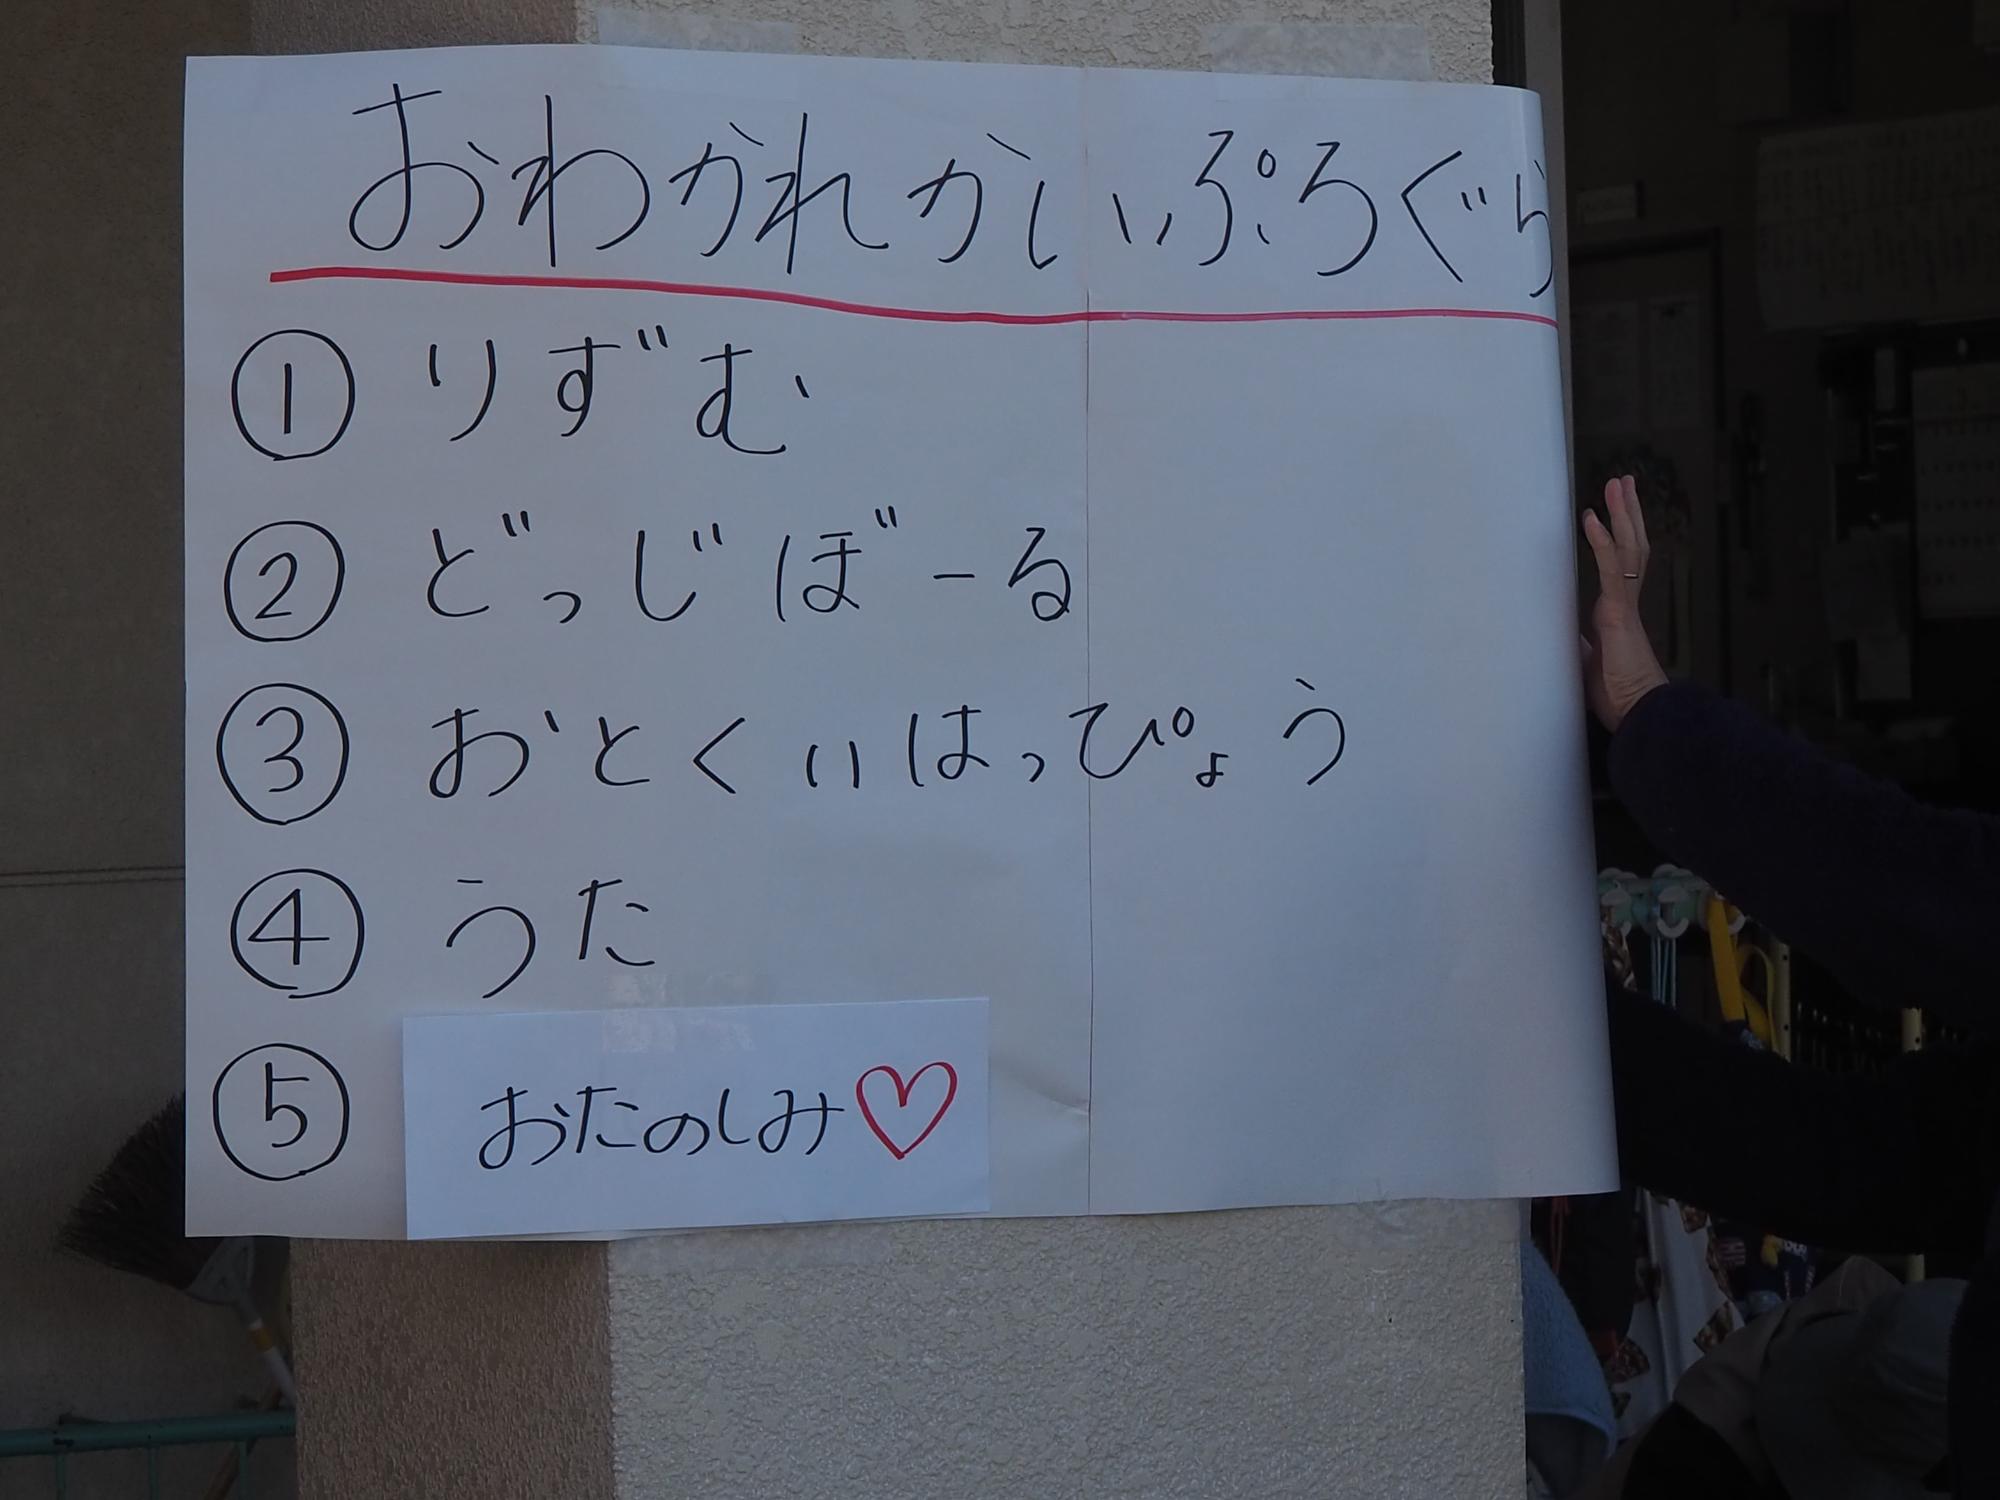 おわかれかいぷろぐら
① りずむ
② どっじぼーる
③ おとくいはっぴょう
④ うた
⑤ おたのしみ♡